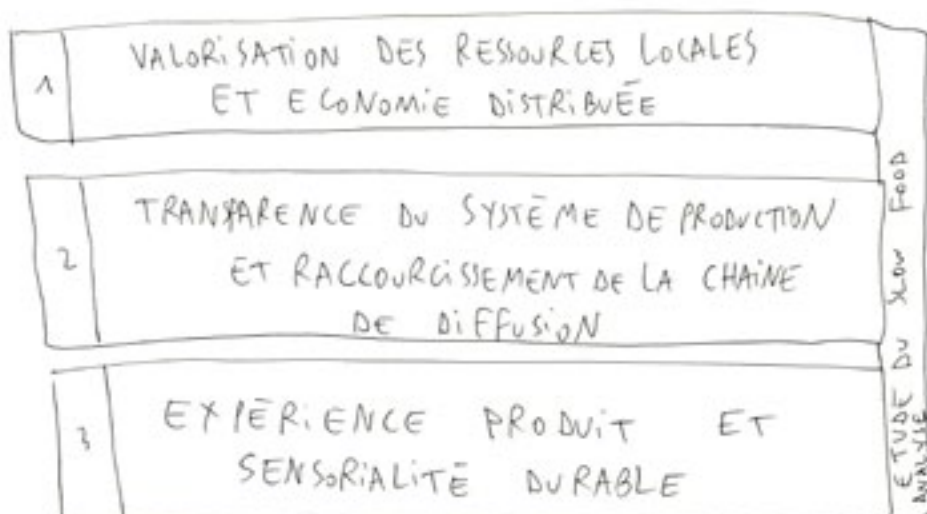 1
VALORISATION DES RESSOURCES LOCALES
ET ECONOMIE DISTRIBUÉE
2
TRANSPARENCE DU SYSTÈME DE PRODUCTION
ET RACCOURCISSEMENT DE LA CHAINE
DE DIFFUSION
3
EXPÉRIENCE PRODUIT ET
SENSORIALITÉ DURABLE
ETUDE DU SLOW FOOD
ANALYSE